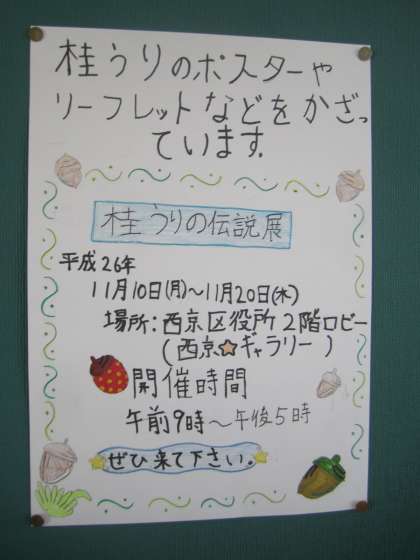 桂うりのポスターや
リーフレットなどをかざっ
ています.
桂うりの伝説展
平成26年
11月10日(月)~11月20日(木)
場所:西京区役所2階ロビー
(西京☆ギャラリー)
開催時間
午前9時~午後5時
ぜひ来て下さい。